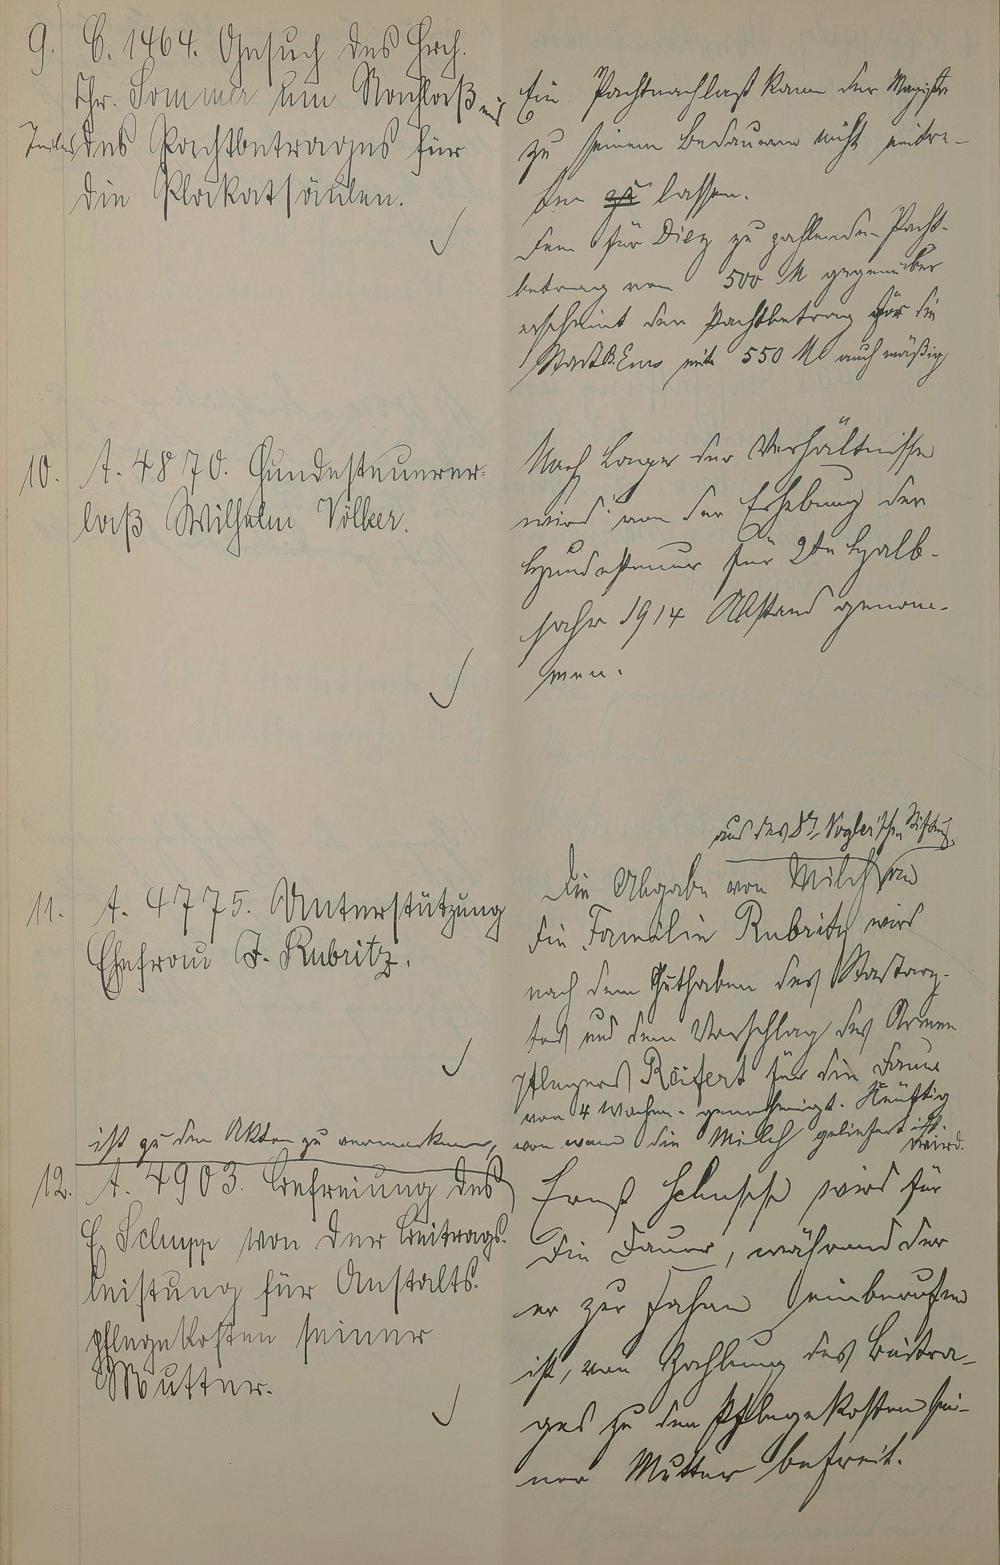 9. C. 1464. Gesuch des Hrch.
Chr. Sommer um Nachlaß eines
Teiles des Pachtbetrages für
die Plakatsäulen.
Ein Pachtnachlaß kann der Magistr.
zu seinem Bedauern nicht eintre-
ten zu lassen.
Dem für Diez zu zahlenden Pacht-
betrag von 500 M gegenüber
erscheint der Pachtbetrag für die
Stadt B. Ems mit 550 M auch mäßig
10. A. 4870. Hundesteuerer-
laß Wilhelm Völker.
Nach Lage der Verhältnisse
wird von der Erhebung der
Hundesteuer für 2te Halb-
jahr 1914 Abstand genom-
men.
11. A. 4775. Unterstützung
Ehefrau J. Rubritz.
aus der Dr. Vogler'schen Stiftung
Die Abgabe von Milch an
die Familie Rubritz wird
nach dem Guthaben des Stadtarz-
tes und dem Vorschlag des Armen
pflegers Reifert für die Dauer
von 4 Wochen genehmigt. Künftig
von wann die Milch geliefert ist.
wird.
ist zu den Akten zu vermerken,
12. A. 4903. Befreiung des
E. Schupp von der Beitrags-
leistung für Anstalts-
pflegekosten seiner
Mutter.
Ernst Schupp wird für
die Dauer, während der
er zur Fahne einberufen
ist, von Zahlung des Beitra-
ges zu den Pflegekosten sei-
ner Mutter befreit.